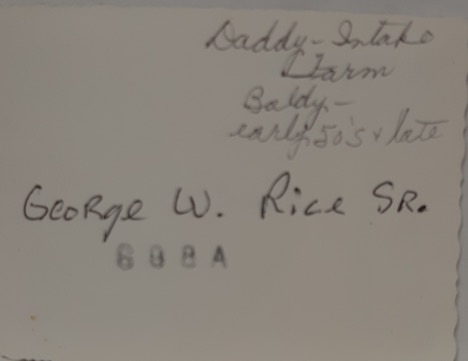 Daddy - Intake
Farm
Baldy -
early 50's & late
George W. Rice SR.
608A